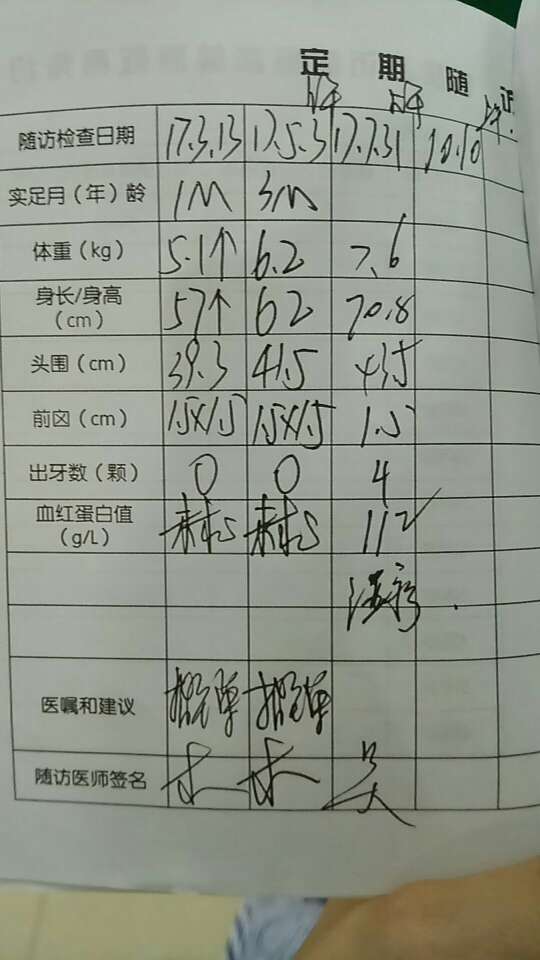 定 期 随 访
随访检查日期 17.3.13 17.5.3 17.7.31 10.10
实足月（年）龄 1M 3M
体重（kg） 5.1↑ 6.2 7.6
身长/身高（cm） 57↑ 62 70.8
头围（cm） 39.3 41.5 43.5
前囟（cm） 1.5×1.5 1.5×1.5 1.5
出牙数（颗） 0 0 4
血红蛋白值（g/L） 112
医嘱和建议
随访医师签名